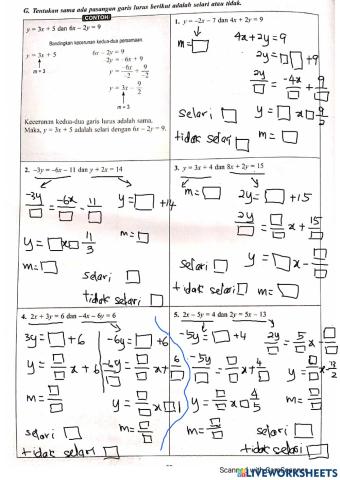 G. Tentukan sama ada pasangan garis lurus berikut adalah selari atau tidak.
CONTOH:
y = 3x + 5 dan 6x – 2y = 9
Bandingkan kecerunan kedua-dua persamaan.
y = 3x + 5
m = 3
6x – 2y = 9
-2y = -6x + 9
y = -6x/-2 + 9/-2
y = 3x – 9/2
m = 3
Kecerunan kedua-dua garis lurus adalah sama.
Maka, y = 3x + 5 adalah selari dengan 6x – 2y = 9.
1. y = –2x – 7 dan 4x + 2y = 9
m = □
4x + 2y = 9
2y = □ □ + 9
2y/□ = -4x/□ + 9/□
y = □ x □ 9/2
m = □
selari □
tidak selari □
2. –3y = –6x – 11 dan y + 2x = 14
-3y/□ = -6x/□ - 11/□
y = □ x □ 11/3
m = □
y = □ + 14
m = □
selari □
tidak selari □
3. y = 3x + 4 dan 8x + 2y = 15
m = □
2y = □ + 15
2y/□ = □/□ x + 15/□
y = □ x - □/□
m = □
selari □
tidak selari □
4. 2x + 3y = 6 dan –4x – 6y = 6
3y = □ + 6
y = □/□ x + 6/□
m = □/□
-6y = □ + 6
-6y/□ = □/□ x + 6/□
y = □/□ x □ 1
m = □/□
selari □
tidak selari □
5. 2x – 5y = 4 dan 2y = 5x – 13
-5y = □ + 4
-5y/□ = □/□ x + 4/□
y = □/□ x □ 4/5
m = □/□
2y/□ = 5/□ x - □/□
y = □/□ x - 13/2
m = □/□
selari □
tidak selari □
Scanned with CamScanner
LIVEWORKSHEETS